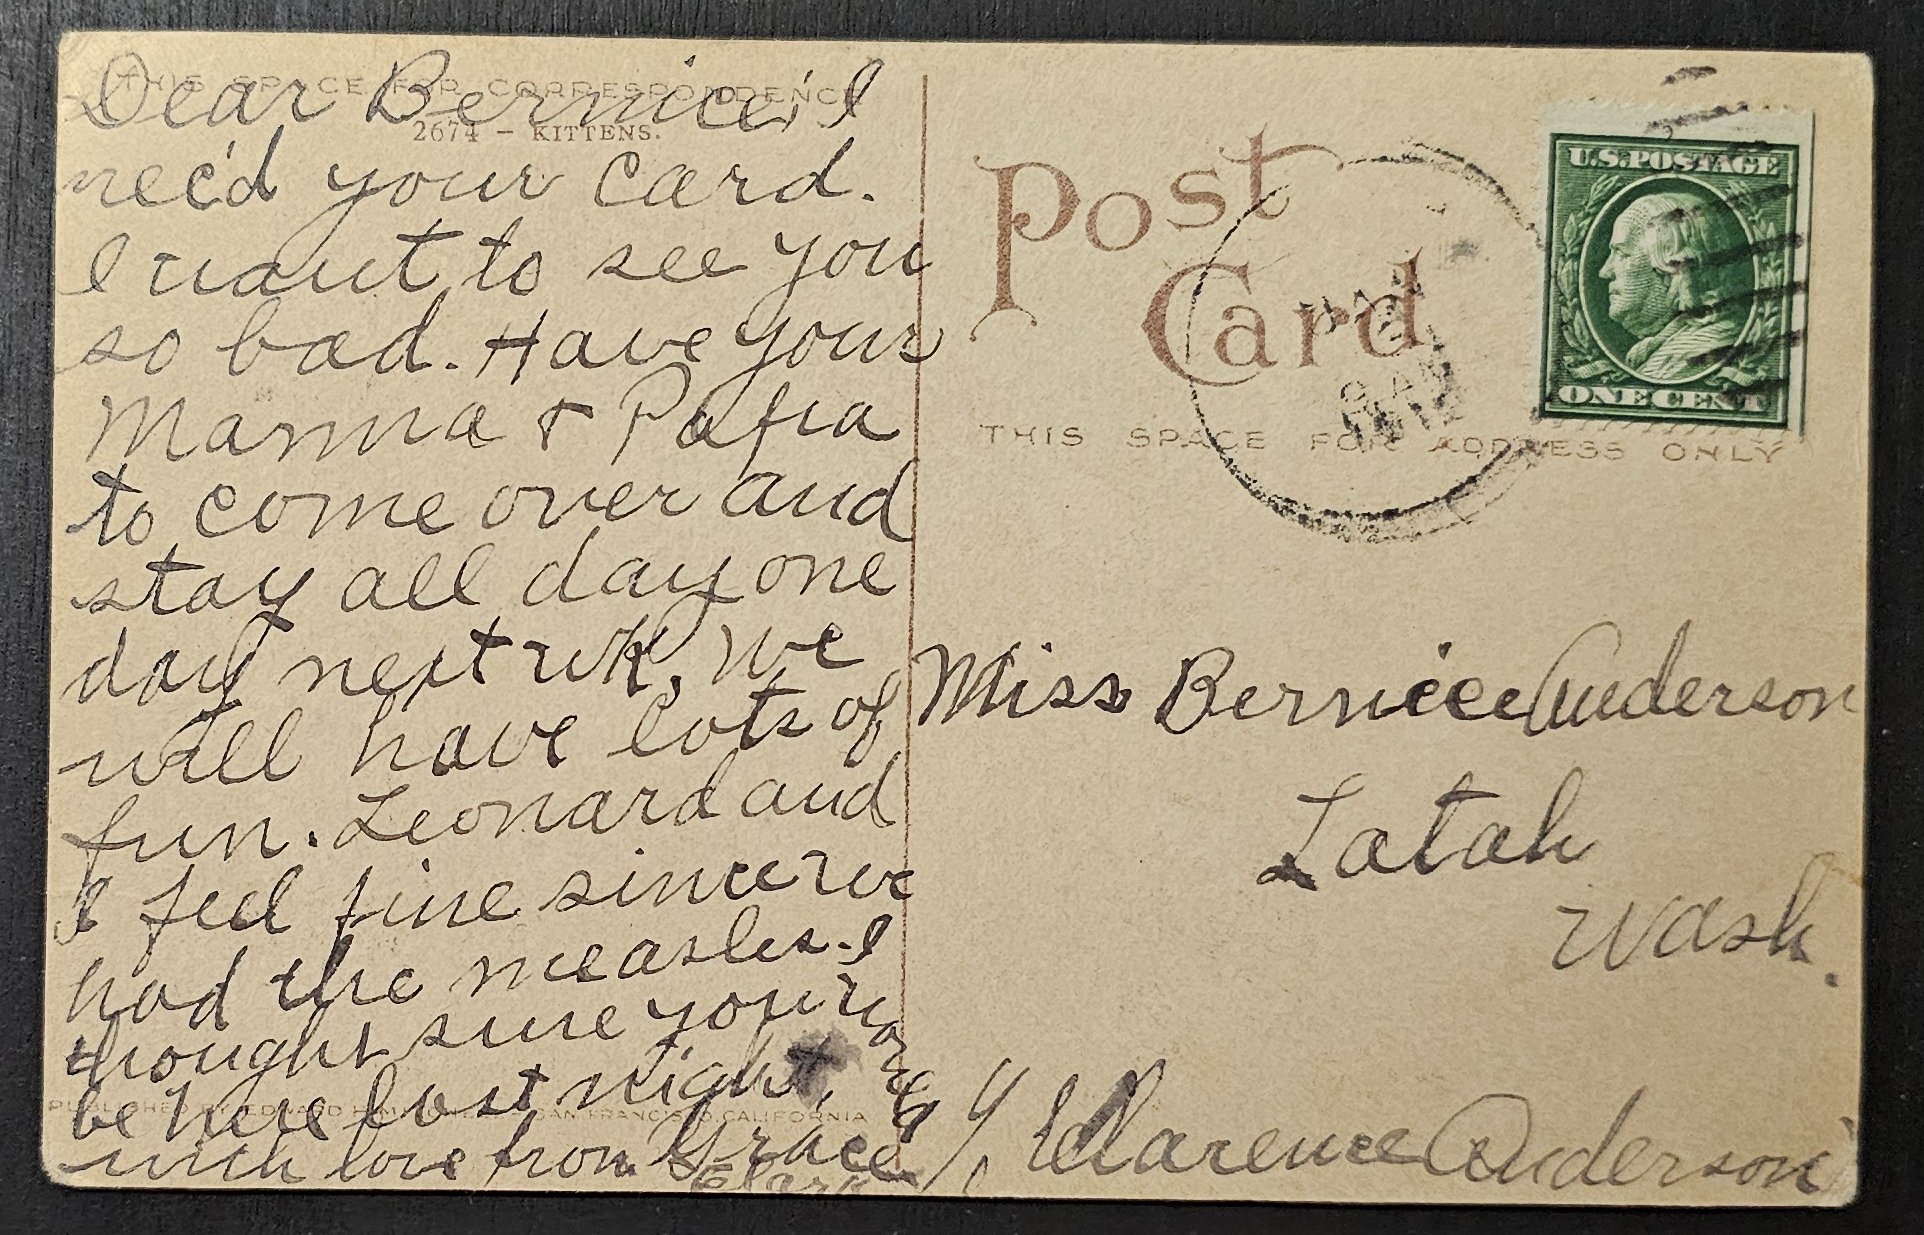 THIS SPACE FOR CORRESPONDENCE
2674 – KITTENS.
Dear Bernice; I
rec'd your card.
I want to see you
so bad. Have your
Mamma & Papa
to come over and
stay all day one
day next wk. We
will have lots of
fun. Leonard and
I feel fine since we
had the measles. I
thought sure you'd
be here last night,
with love from Grace
Post
Card
THIS SPACE FOR ADDRESS ONLY
U.S. POSTAGE
ONE CENT
Miss Bernicee Anderson
Latah
Wash.
Clarence Anderson
PUBLISHED BY EDWARD H. MITCHELL, SAN FRANCISCO, CALIFORNIA